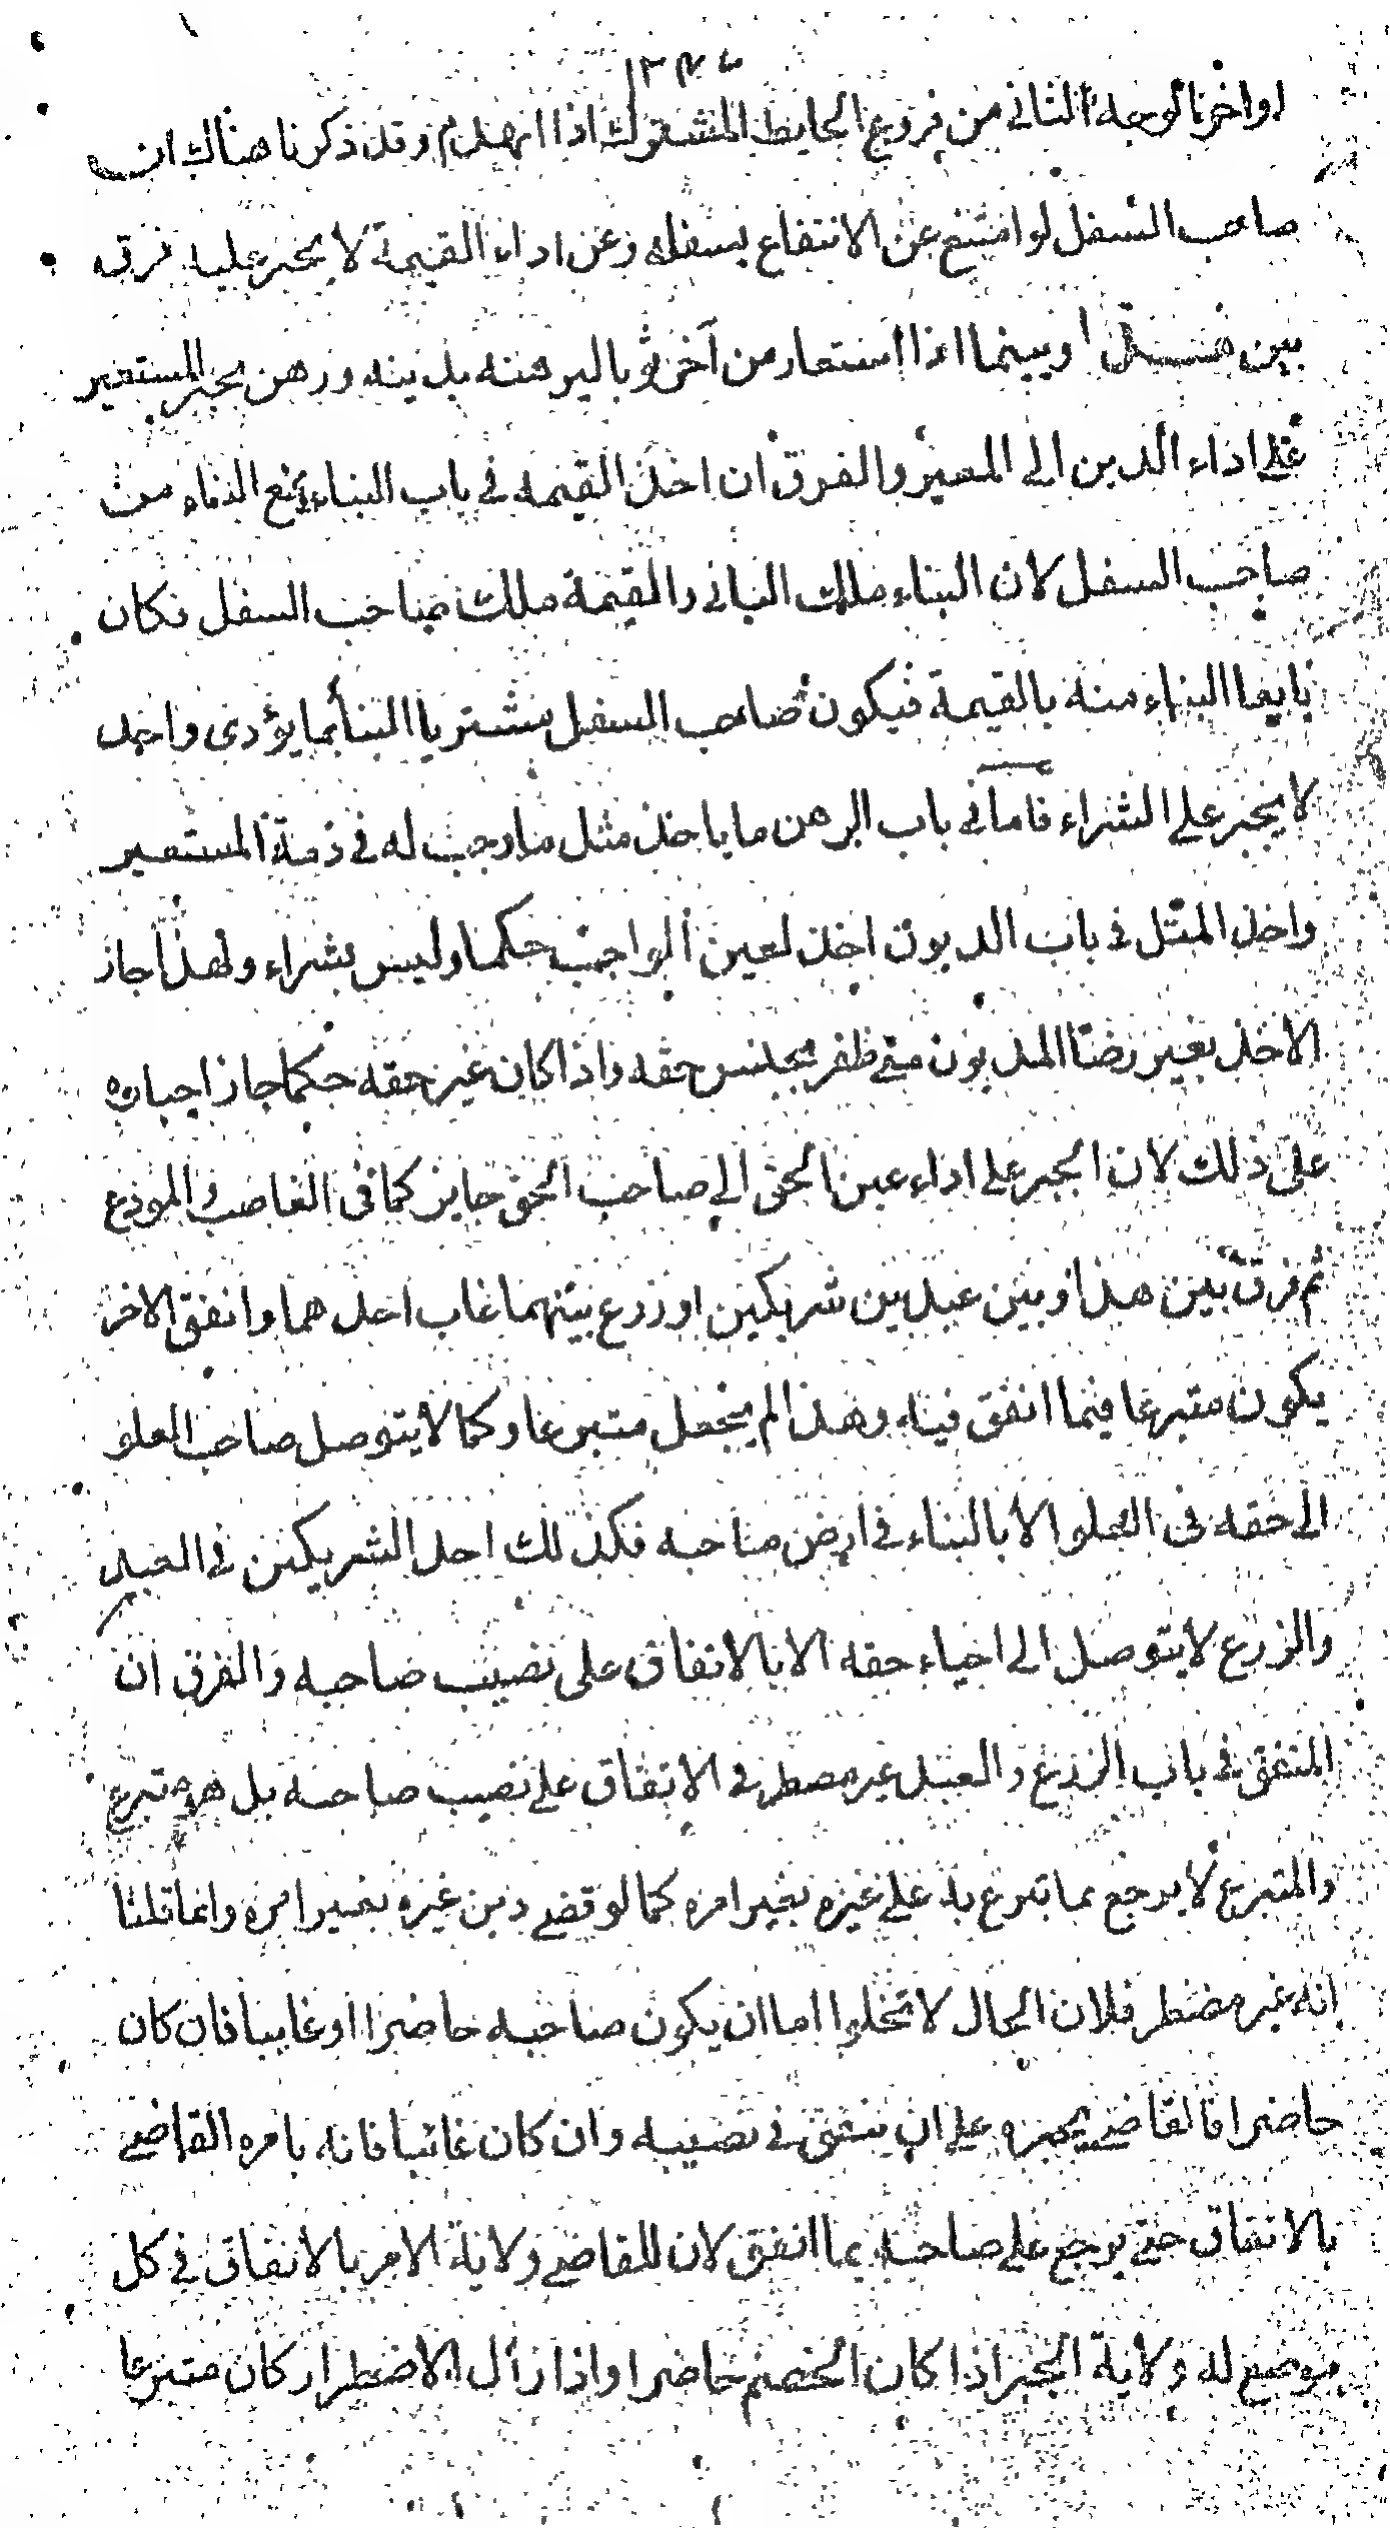 اواخر الوجه الثاني من فروع الحايط المشترك اذا انهدم وقد ذكرنا هناك ان
صاحب السفل لو امتنع عن الانتفاع بسفله وعن اداء القيمة لا يجبر عليه فرق
بين هذا وبينما اذا استعار من آخر ثوبا ليرهنه بدينه ورهن يجبر المستعير
على اداء الدين الى المعير والفرق ان اخذ القيمه في باب البناء يمنع البناء من
صاحب السفل لان البناء ملك الباني والقيمة ملك صاحب السفل فكان
بايعا البناء منه بالقيمة فيكون صاحب السفل مشتريا البنأ بما يؤدى واحد
لا يجبر على الشراء فاما في باب الرهن ما ياخذ مثل ما وجب له في ذمة المستعير
واخذ المثل في باب الديون اخذ لعين الواجب حكما وليس بشراء ولهذا جاز
الاخذ بغير رضا المديون متى ظفر بجنس حقه واذا كان غير حقه حكما جاز اجباره
على ذلك لان الجبر على اداء عين الحق الى صاحب الحق جايز كما في الغاصب والمودع
ثم فرق بين هذا وبين عبد بين شريكين او زرع بينهما غاب احدهما وانفق الاخر
يكون متبرعا فيما انفق فيه وهذا لم يجعل متبرعا وكما لا يتوصل صاحب العلو
الى حقه في العلو الا بالبناء في ارض صاحبه فكذلك احد الشريكين في العبد
والزرع لا يتوصل الى احياء حقه الا بالانفاق على نصيب صاحبه والفرق ان
المنفق في باب الزرع والعبد غير مضطر في الانفاق على نصيب صاحبه بل هو متبرع
والمتبرع لا يرجع بما تبرع به على غيره بغير امره كما لو قضى دين غيره بغير امره وانما قلنا
انه غير مضطر فلان الحال لا تخلوا اما ان يكون صاحبه حاضرا او غايبا فان كان
حاضرا فالقاضي يجبره على ان ينفق في نصيبه وان كان غائبا فانه يامره القاضي
بالانفاق حتى يرجع على صاحبه بما انفق لان للقاضي ولاية الامر بالانفاق في كل
موضع له ولاية الجبر اذا كان الخصم حاضرا واذا زال الاضطرار كان متبرعا